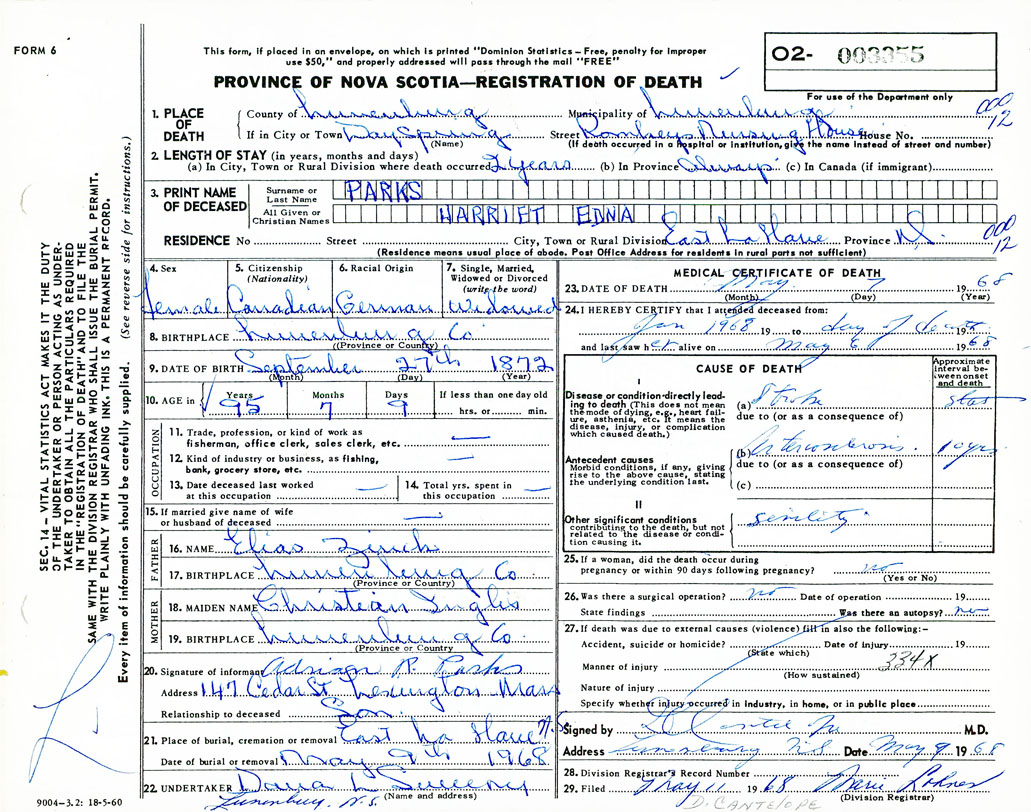 FORM 6
This form, if placed in an envelope, on which is printed "Dominion Statistics – Free, penalty for improper
use $50," and properly addressed will pass through the mail "FREE"
PROVINCE OF NOVA SCOTIA—REGISTRATION OF DEATH
02- 003355
For use of the Department only
1. PLACE OF DEATH
County of Lunenburg Municipality of Lunenburg
000 12
If in City or Town DaySpring Street Romkeys Nursing House House No.
(Name) (If death occurred in a hospital or institution, give the name instead of street and number)
2. LENGTH OF STAY (in years, months and days)
(a) In City, Town or Rural Division where death occurred 2 years (b) In Province Always (c) In Canada (if immigrant)
3. PRINT NAME OF DECEASED
Surname or Last Name PARKS
All Given or Christian Names HARRIET EDNA
RESIDENCE No Street City, Town or Rural Division East La Have Province N.S.
000 12
(Residence means usual place of abode. Post Office Address for residents in rural parts not sufficient)
4. Sex female
5. Citizenship (Nationality) Canadian
6. Racial Origin German
7. Single, Married, Widowed or Divorced (write the word) Widowed
8. BIRTHPLACE Lunenburg Co
(Province or Country)
9. DATE OF BIRTH September 27th 1872
(Month) (Day) (Year)
10. AGE in Years 95 Months 7 Days 9 If less than one day old
hrs. or min.
OCCUPATION
11. Trade, profession, or kind of work as
fisherman, office clerk, sales clerk, etc. —
12. Kind of industry or business, as fishing,
bank, grocery store, etc. —
13. Date deceased last worked at this occupation —
14. Total yrs. spent in this occupation —
15. If married give name of wife
or husband of deceased —
FATHER
16. NAME Elias Zinck
17. BIRTHPLACE Lunenburg Co
(Province or Country)
MOTHER
18. MAIDEN NAME Christian Inglis
19. BIRTHPLACE Lunenburg Co.
(Province or Country
20. Signature of informant Adrian R. Parks
Address 147 Cedar St Lexington Mass
Relationship to deceased Son
21. Place of burial, cremation or removal East La Have N.S.
Date of burial or removal May 9th 1968
22. UNDERTAKER Dana L Sweeny
(Name and address)
Lunenburg, N.S.
9004-3.2: 18-5-60
MEDICAL CERTIFICATE OF DEATH
23. DATE OF DEATH May 7 1968
(Month) (Day) (Year)
24. I HEREBY CERTIFY that I attended deceased from:
Jan 1968 19 to day of death 19
and last saw her alive on May 6 1968
CAUSE OF DEATH
Approximate interval between onset and death
I
Disease or condition directly leading to death (This does not mean the mode of dying, e.g., heart failure, asthenia, etc. It means the disease, injury, or complication which caused death.)
(a) Stroke stat
due to (or as a consequence of)
Antecedent causes
Morbid conditions, if any, giving rise to the above cause, stating the underlying condition last.
(b) 10 yrs
due to (or as a consequence of)
(c)
II
Other significant conditions
contributing to the death, but not related to the disease or condition causing it.
senility
25. If a woman, did the death occur during
pregnancy or within 90 days following pregnancy? no
(Yes or No)
26. Was there a surgical operation? no Date of operation 19
State findings Was there an autopsy? no
27. If death was due to external causes (violence) fill in also the following:–
Accident, suicide or homicide? Date of injury 19
(State which)
Manner of injury 334X
(How sustained)
Nature of injury
Specify whether injury occurred in industry, in home, or in public place
Signed by M.D.
Address Lunenburg NS Date May 9 1968
28. Division Registrar's Record Number
29. Filed May 11 1968 Marie Lohnes
(Division Registrar)
D. CANTELOPE
SEC. 14 – VITAL STATISTICS ACT MAKES IT THE DUTY
OF THE UNDERTAKER OR PERSON ACTING AS UNDER-
TAKER TO OBTAIN ALL THE PARTICULARS REQUIRED
IN THE "REGISTRATION OF DEATH" AND TO FILE THE
SAME WITH THE DIVISION REGISTRAR WHO SHALL ISSUE THE BURIAL PERMIT.
WRITE PLAINLY WITH UNFADING INK. THIS IS A PERMANENT RECORD.
Every item of information should be carefully supplied. (See reverse side for instructions.)